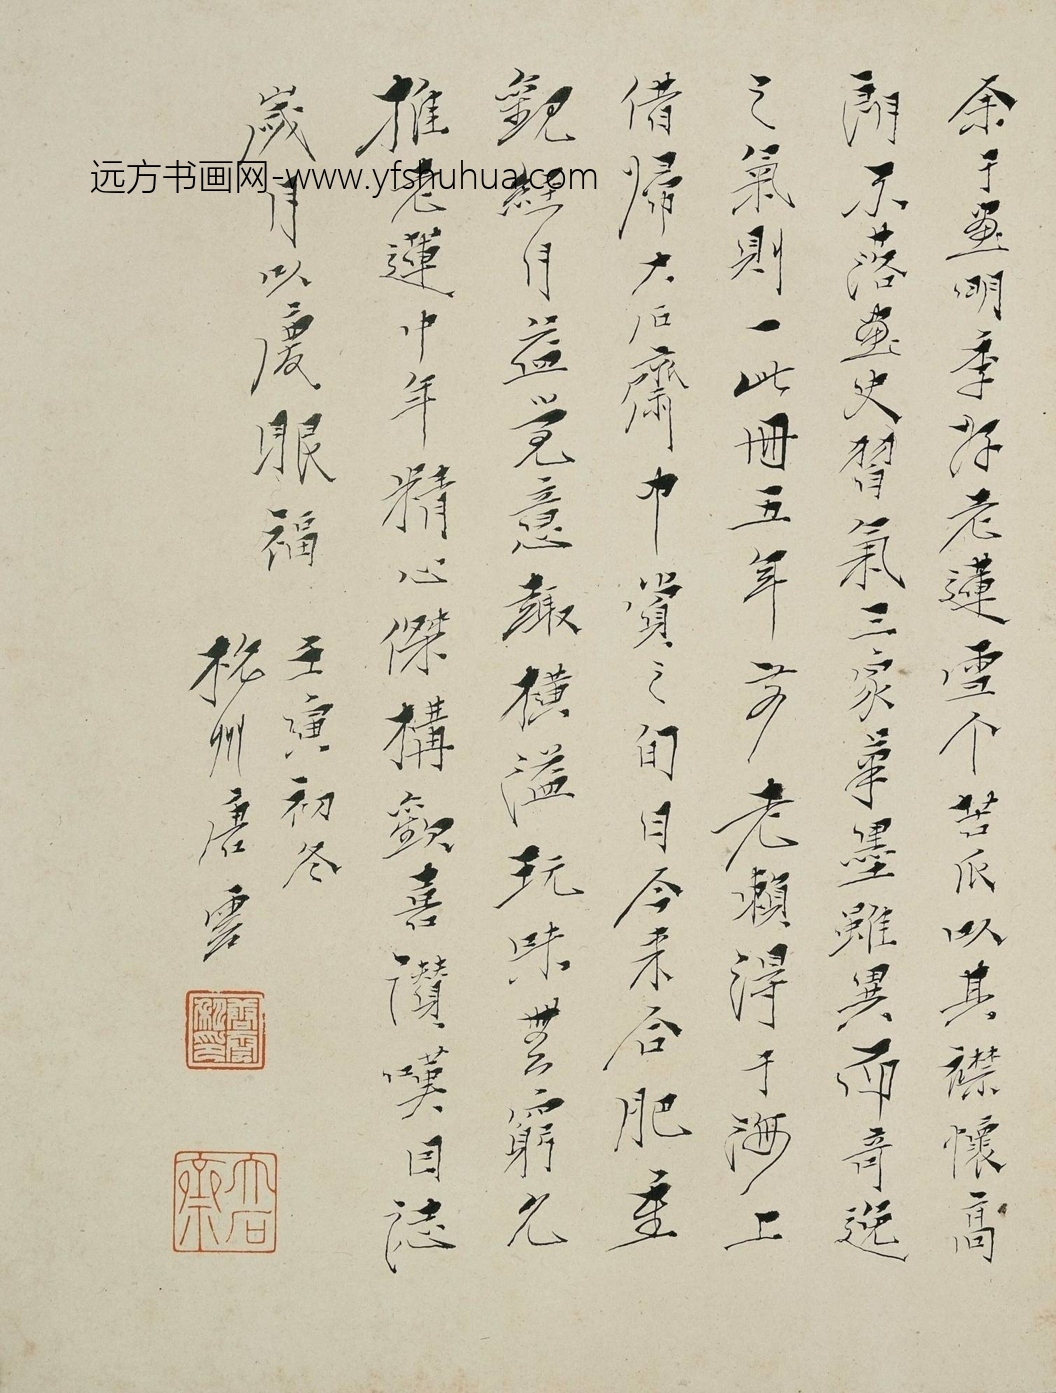 余于畫明季好老蓮雪个苦瓜以其襟懷高
朗不落畫史習氣三家筆墨雖異而奇逸
之氣則一此冊五年前老賴得于海上
借歸大石齋中賞之旬日今來合肥重
觀經月益覺意趣橫溢玩味無窮允
推老蓮中年精心傑構歡喜讚嘆因誌
歲月以慶眼福
壬寅初冬
杭州唐雲
唐雲私印
大石齋
远方书画网-www.yfshuhua.com